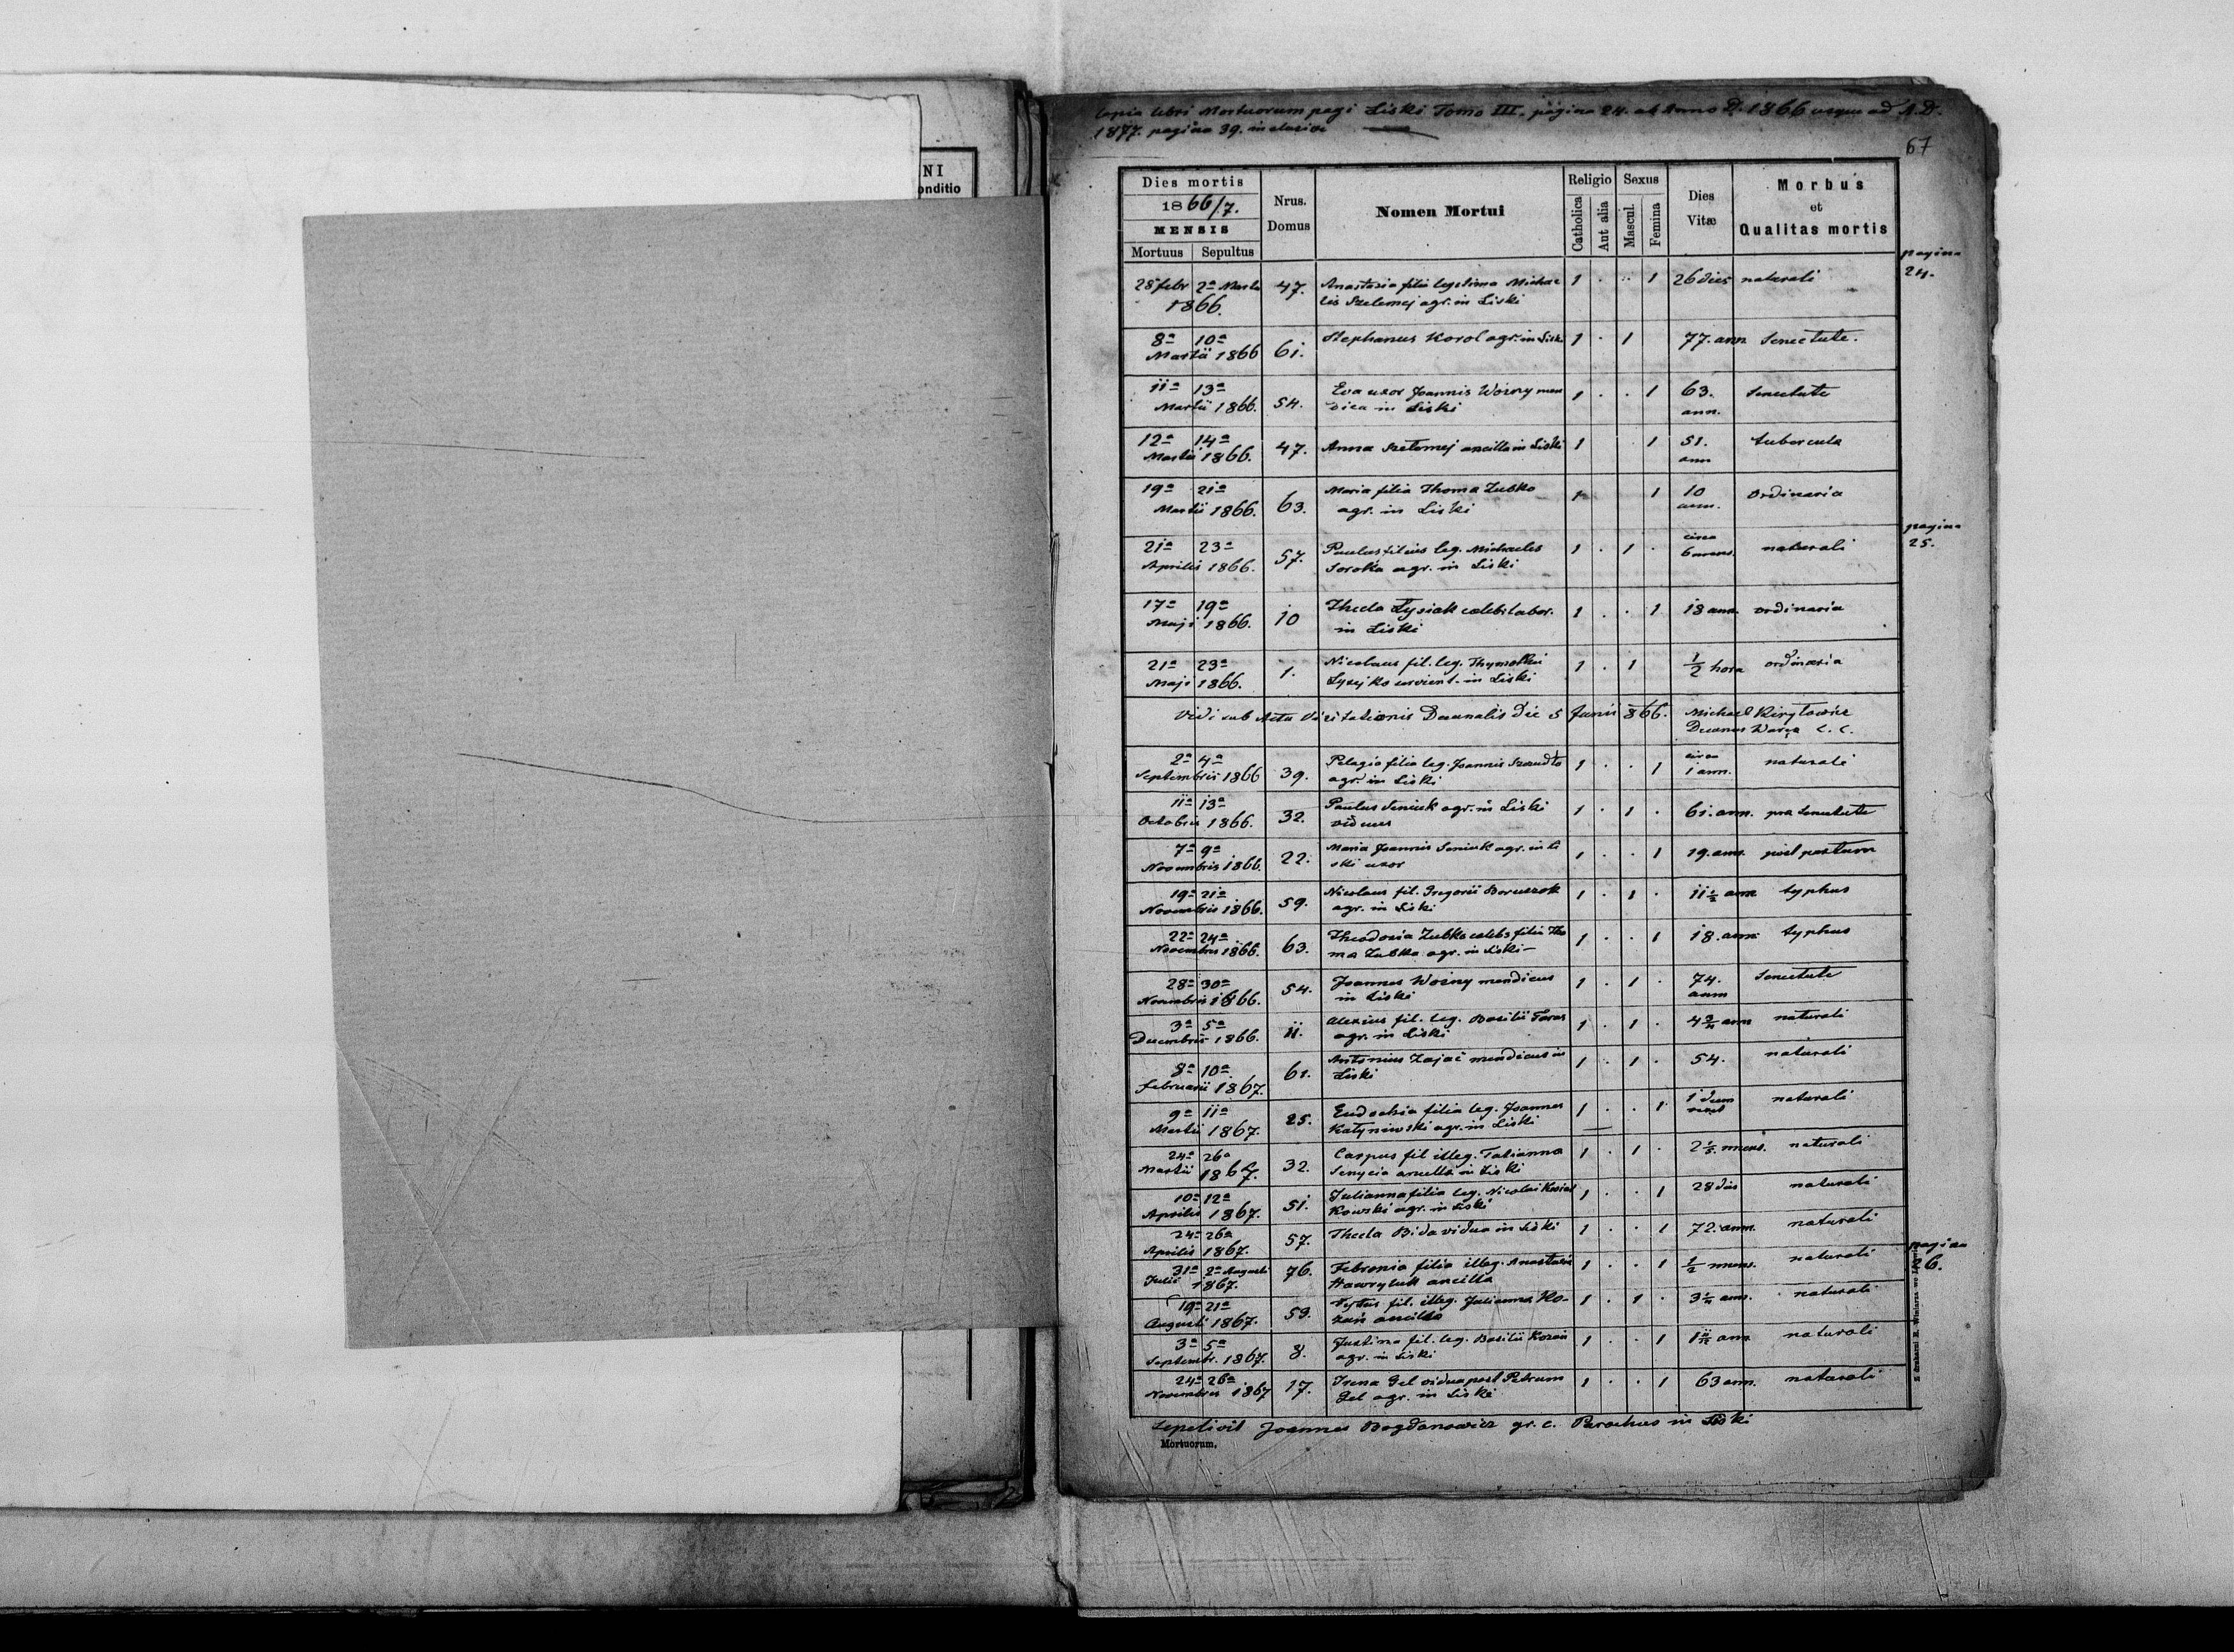 NI
onditio
Copia libri Mortuorum pagi Liski Tomo III. pagina 24. ab Anno D. 1866 usque ad A.D.
1877. pagina 39. inclusive
67
Dies mortis
1866/7.
MENSIS
Mortuus Sepultus
Nrus. Domus
Nomen Mortui
Religio
Catholica
Aut alia
Sexus
Mascul.
Femina
Dies Vitæ
Morbus
et
Qualitas mortis
pagina
24.
28 febr 2a Martii 47. Anastasia filia legitima Michae 1 . .. 1 26 dies naturali
1866. lis Szelemej agr. in Liski
8a 10a Stephanus Korol agr. in Liski 1 . 1 77. ann Senectute.
Martii 1866 61.
11a 13a Eva uxor Joannis Woźny men 1 . . 1 63. Senectute
Martii 1866. 54. dica in Liski ann.
12a 14a 47. Anna Szełomej ancilla in Liski 1 1 51. tubercula
Martii 1866. ann
19a 21a Maria filia Thoma Zubko 1 1 10 Ordinaria
Martii 1866. 63. agr. in Liski ann.
pagina
25.
21a 23a 57. Paulus filius leg. Michaelis 1 . 1 . circa naturali
Aprilis 1866. Soroka agr. in Liski 6 mens.
17a 19a 10 Thecla Łysiak cælebs labor. 1 . . 1 18 ann. ordinaria
Maji 1866. in Liski
21a 23a 1. Nicolaus fil. leg. 1 . 1 1/2 hora ordinaria
Maji 1866. in Liski
Vidi sub Actu Visitationis Decanalis die 5 Junii 866. Michael
Decanus C. C.
2a 4a 39. Pelagia filia leg. Joannis 1 . . 1 circa naturali
Septembris 1866 agr. in Liski 1 ann.
11a 13a 32. Paulus Seniuk agr. in Liski 1 . 1 . 61. ann. præ Senectute
Octobris 1866. viduus
7a 9a 22. Maria Joannis Seniuk agr. in Li 1 . . 1 19. ann. post partum
Novembris 1866. ski uxor
19a 21a 59. Nicolaus fil. Gregorii Boruszok 1 . 1 . 11 1/2 ann. typhus
Novembris 1866. agr. in Liski
22a 24a 63. Theodosia Zubko cælebs filia Tho 1 . . 1 18. ann. typhus
Novembris 1866. ma Zubko agr. in Liski
28a 30a 54. Joannes Woźny mendicus 1 . 1 . 74. Senectute
Novembris 1866. in Liski ann
3a 5a 11. Alexius fil. leg. Basilii Taras 1 . 1 . 4 3/4 ann naturali
Decembris 1866. agr. in Liski
8a 10a 61. Antonius Zając mendicus in 1 . 1 . 54. naturali
Februarii 1867. Liski
9a 11a 25. Eudochia filia leg. Joannes 1 . . 1 1 naturali
Martii 1867. Katyniwski agr. in Liski
24a 26a 32. Carpus fil illeg. Tatianna 1 . 1 . mens. naturali
Martii 1867. ancilla in Liski
10a 12a 51. Julianna filia leg. Nicolai 1 . . 1 28 dies naturali
Aprilis 1867. kowski agr. in Liski
24a 26a 57. Thecla Bida vidua in Liski 1 . . 1 72. ann. naturali
Aprilis 1867.
pagina
26.
31a 2a Augusti 76. Febronia filia illeg. Anastasia 1 . . 1 1/2 mens. naturali
Julii 1867. Hawryluk ancilla
19a 21a 59. fil. illeg. Julianna Ko- 1 . 1 . 3 1/4 ann. naturali
Augusti 1867. zań ancilla
3a 5a 8. Justina fil. leg. Basilii Kozań 1 . . 1 ann naturali
Septembr. 1867. agr. in Liski
24a 26a 17. Irena Gel vidua post Petrum 1 . . 1 63 ann. naturali
Novembris 1867 Gel agr. in Liski
Sepelivit Joannes Bogdanowicz gr. c. Parochus in Liski
Mortuorum.
Z drukarni E. Winiarza we Lwowie.